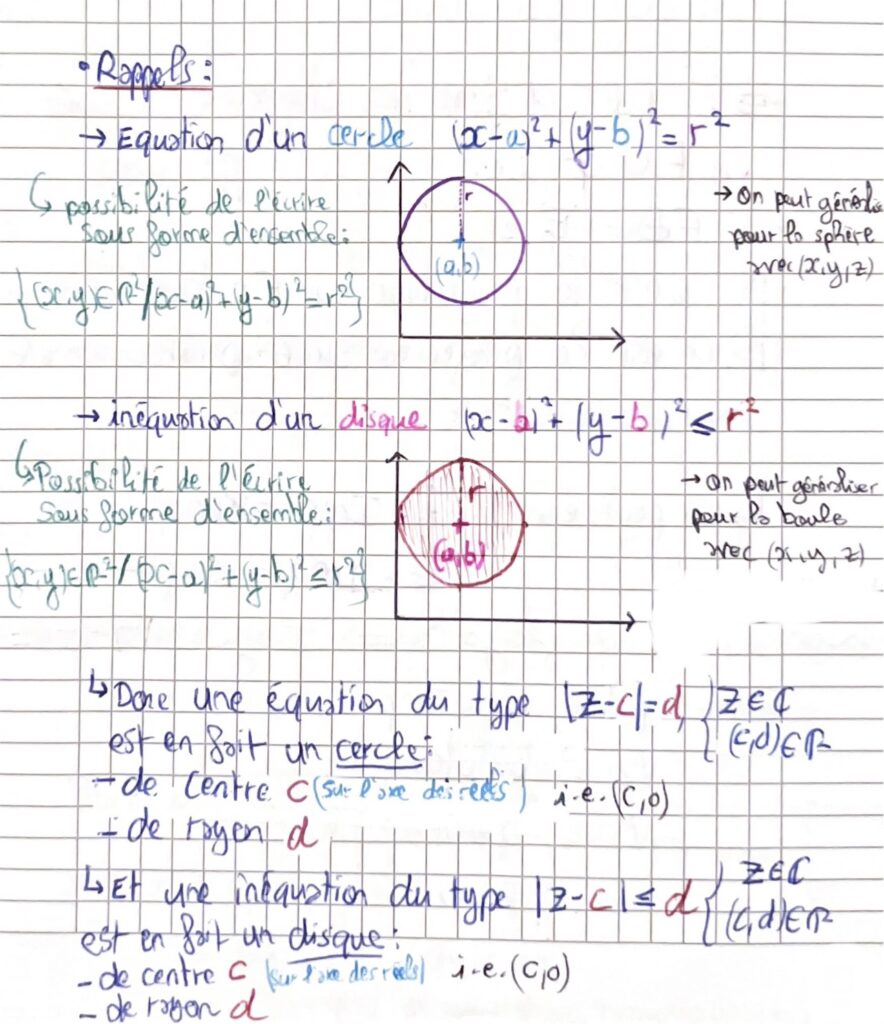 • Rappels :
→ Equation d'un cercle (x-a)²+(y-b)²=r²
↳ possibilité de l'écrire
sous forme d'ensemble :
{(x,y)∈ℝ²/(x-a)²+(y-b)²=r²}
r
(a,b)
→ On peut générali
pour la sphère
avec (x,y,z)
→ inéquation d'un disque (x-b)²+(y-b)²≤r²
↳ Possibilité de l'écrire
sous forme d'ensemble :
{x,y)∈ℝ²/(x-a)²+(y-b)²≤r²}
r
(a,b)
→ On peut généraliser
pour la boule
avec (x,y,z)
↳ Donc une équation du type |z-c|=d, { z∈ℂ
(c,d)∈ℝ
est en fait un cercle :
- de centre c (sur l'axe des réels) i.e. (c,0)
- de rayon d
↳ Et une inéquation du type |z-c|≤d { z∈ℂ
(c,d)∈ℝ
est en fait un disque :
- de centre c (sur l'axe des réels) i.e. (c,0)
- de rayon d